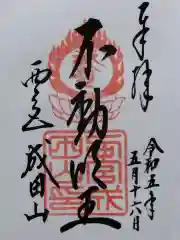 奉拝
令和五年
五月十六日
不動明王
成田山